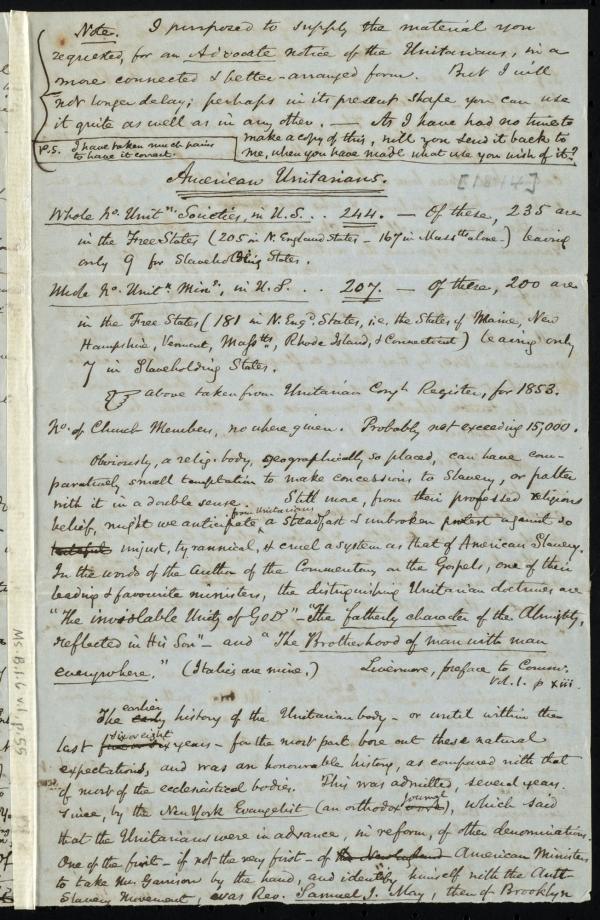 Note. I purposed to supply the material you
requested, for an Advocate notice of the Unitarians, in a
more connected & better-arranged form. But I will
not longer delay; perhaps in its present shape you can use
it quite as well as in any other. — As I have had no time to
make a copy of this, will you send it back to
me, when you have made what use you wish of it?
P.S. I have taken much pains
to have it correct.
American Unitarians.
Whole No. Unitn. Societies, in U.S. . . 244. — Of these, 235 are
in the Free States (205 in N. England States — 167 in Masstts alone —) leaving
only 9 for Slaveholding States.
Whole No. Unitn. Minrs, in U.S. . . 207. — Of these, 200 are
in the Free States (181 in N. Engd. States, i.e. the States of Maine, New
Hampshire, Vermont, Masstts, Rhode Island, & Connecticut) leaving only
7 in Slaveholding States.
☞ above taken from Unitarian Congl. Register, for 1853.
No. of Church Members, no where given. Probably not exceeding 15,000.
Obviously, a relig. body, geographically so placed, can have com-
paratively small temptation to make concessions to Slavery, or palter
with it in a double sense. Still more, from their professed religious
belief, might we anticipate from Unitarians a steadfast & unbroken protest against so
unjust, tyrannical, & cruel a system as that of American Slavery.
In the words of the author of the Commentary on the Gospels, one of their
leading & favourite ministers, the distinguishing Unitarian doctrines are
"The inviolable Unity of GOD" — The fatherly character of the Almighty,
reflected in His Son" — and "The Brotherhood of man with man
everywhere." (Italics are mine.) Livermore, preface to Comm.
Vol. 1. p xiii.
The earlier history of the Unitarian body — or until within the
last six or eight years — for the most part, bore out these natural
expectations, and was an honourable history, as compared with that
of most of the ecclesiastical bodies. This was admitted, several years
since, by the New York Evangelist (an orthodox journal), which said
that the Unitarians were in advance, in reform, of other denominations.
One of the first — if not the very first — of the New England American Ministers
to take Mr. Garrison by the hand, and identify himself with the Anti
Slavery Movement, was Rev. Samuel J. May, then of Brooklyn
Ms. B.1.6 v.1, p.55